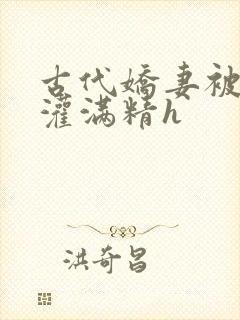 古代嬌妻被
灌满精h
洪奇昌